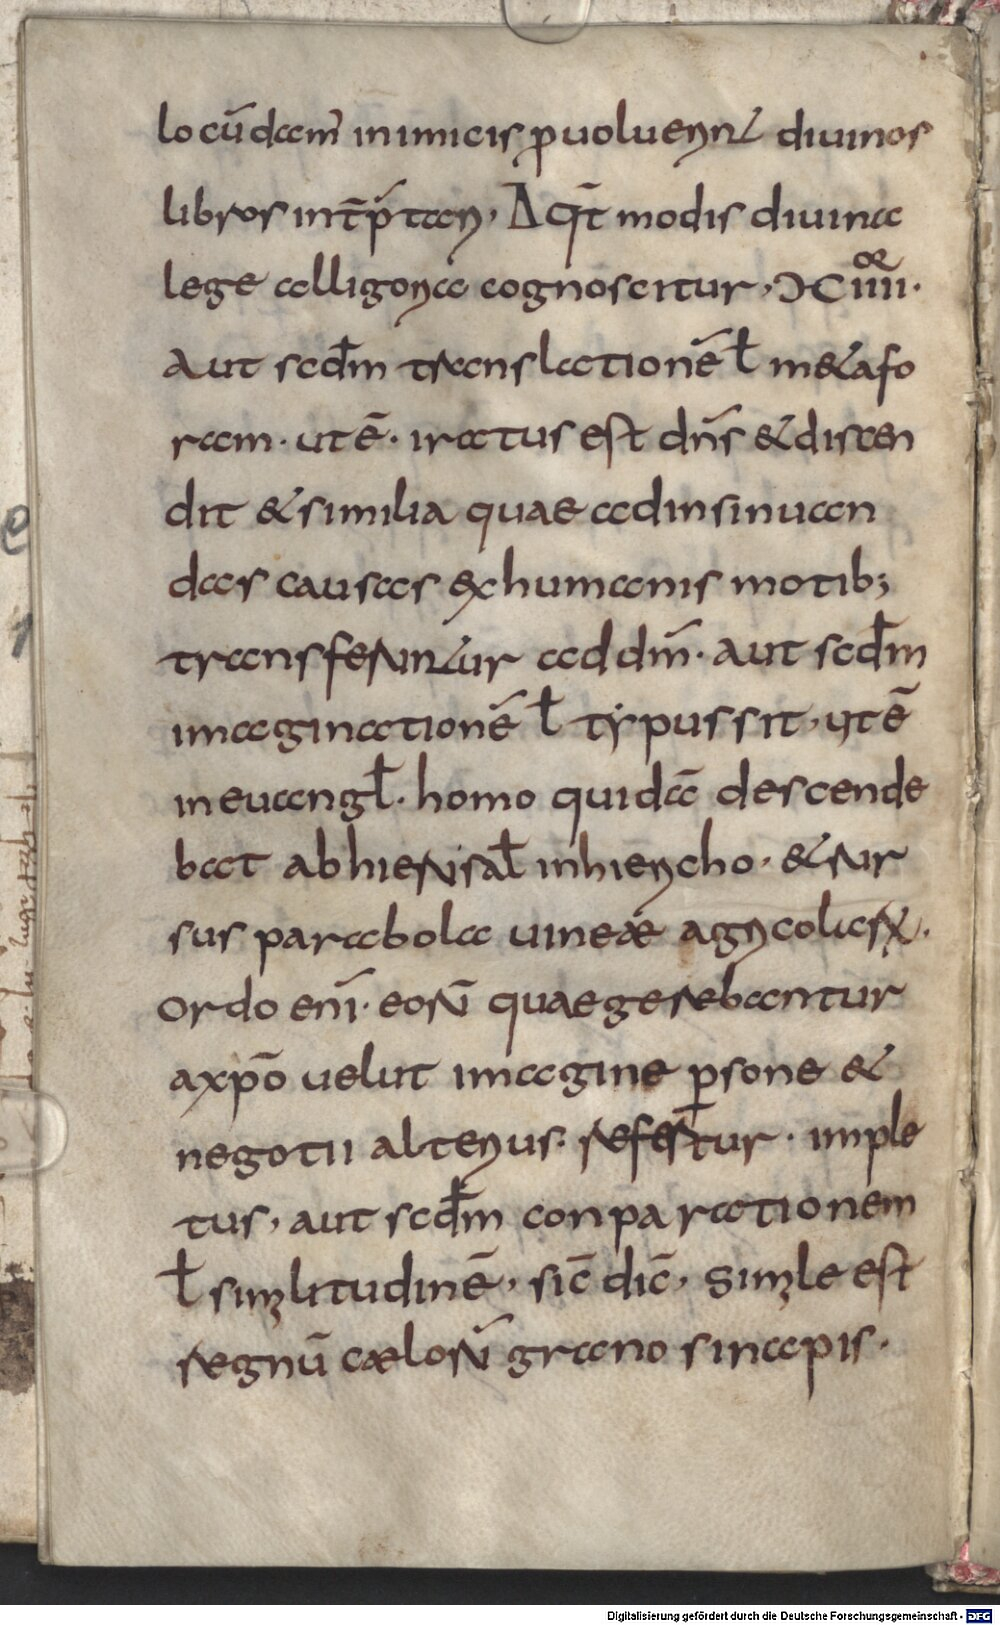 locū dam̄ inimicis ꝓuoluerunt diuinos
libros int̄ṕtari, Δ q̄t modis diuina
lege alligoria cognoscitur, ƆC iiii or.
aut scdm̄ translationē ł metafo
ram. ut ē. iratus est dn̄s & discen
dit & similia quae adinsinuan
das causas ex humanis motib;
transferuntur ad dm̄. aut scdm̄
imaginationē ł typus sit, ut ē
in euangł. homo quidā descende
bat ab hierusał in hiericho. & rur
sus parabola uineæ agricolarꝝ.
Ordo eni̅. eorū quae gerebantur
a xp̄o uelut imagine ꝑsone &
negotii alterius. refertur. imple
tus, aut scdm̄ conparationem
ł similitudinē, sic̄ dic̄, simile est
regnū cælorū grano sinapis.
Digitalisierung gefördert durch die Deutsche Forschungsgemeinschaft - DFG